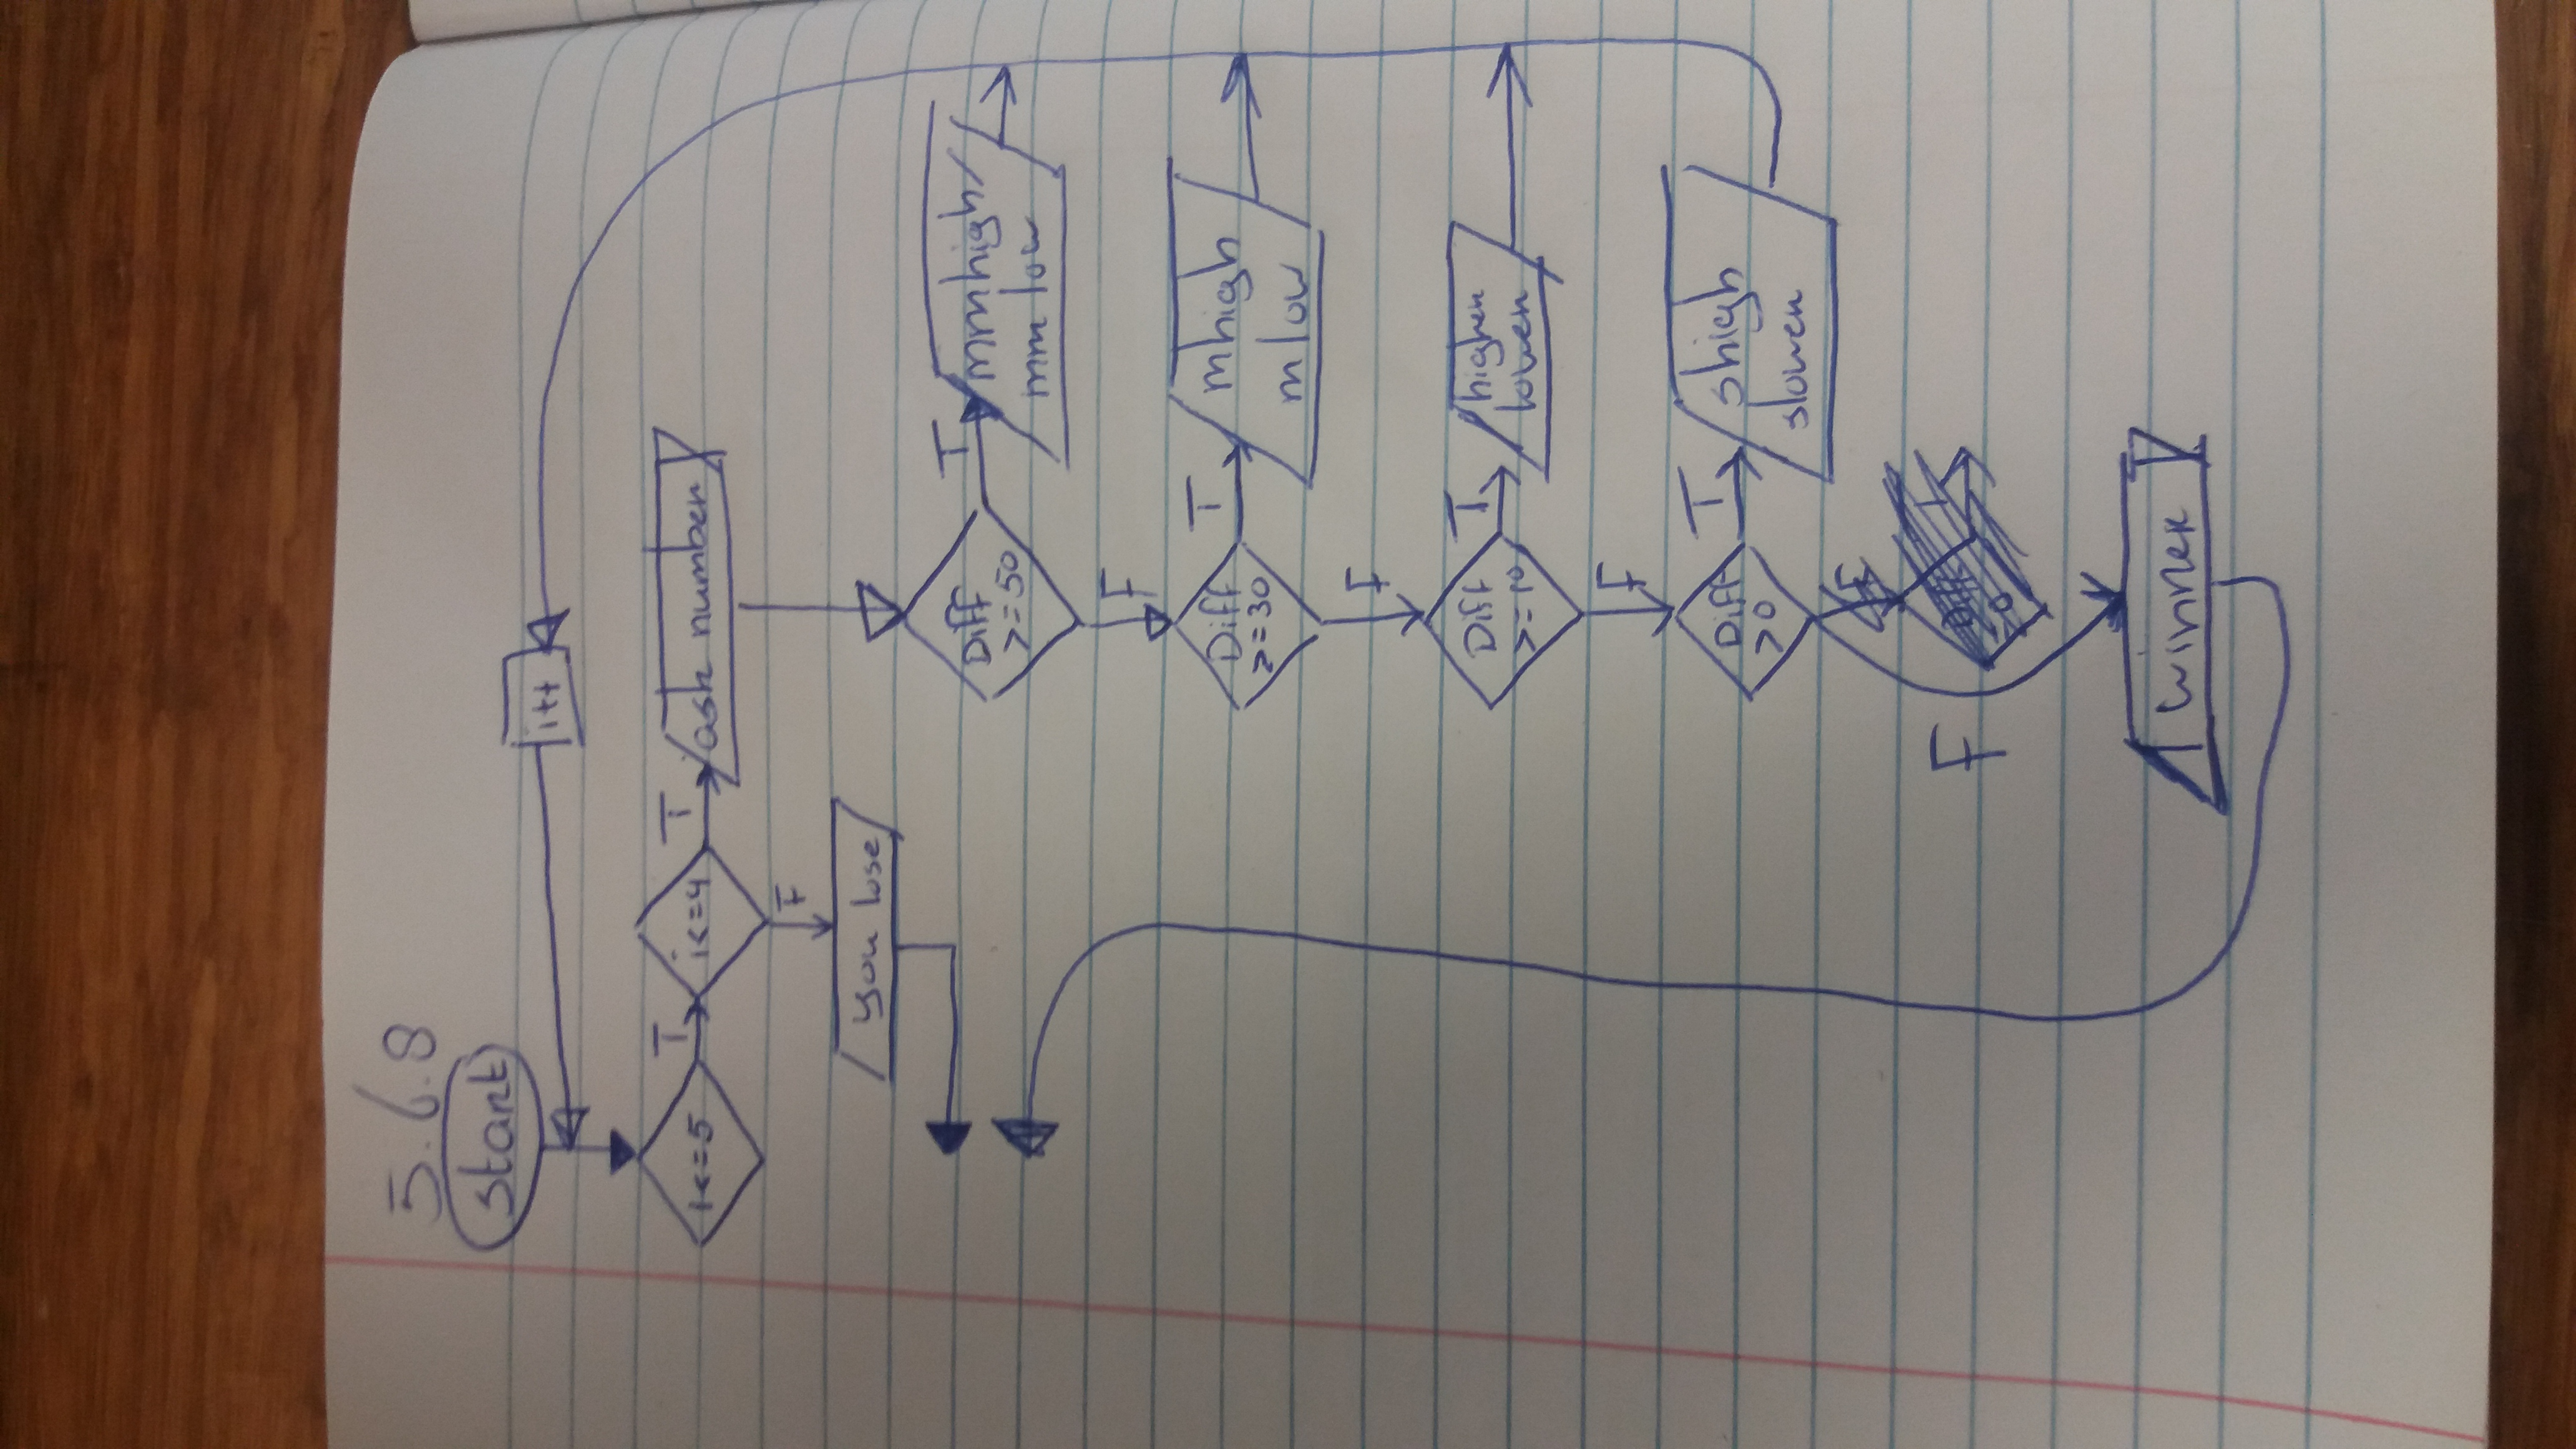 5.6.8
start
i++
i<=5
T
i<=4
T
ask number
F
you lose
Diff
>=50
T
mmhigh/
mm low
F
Diff
>=30
T
mhigh
m low
F
Diff
>=10
T
higher
lower
F
Diff
>0
T
shigh
slower
F
winner